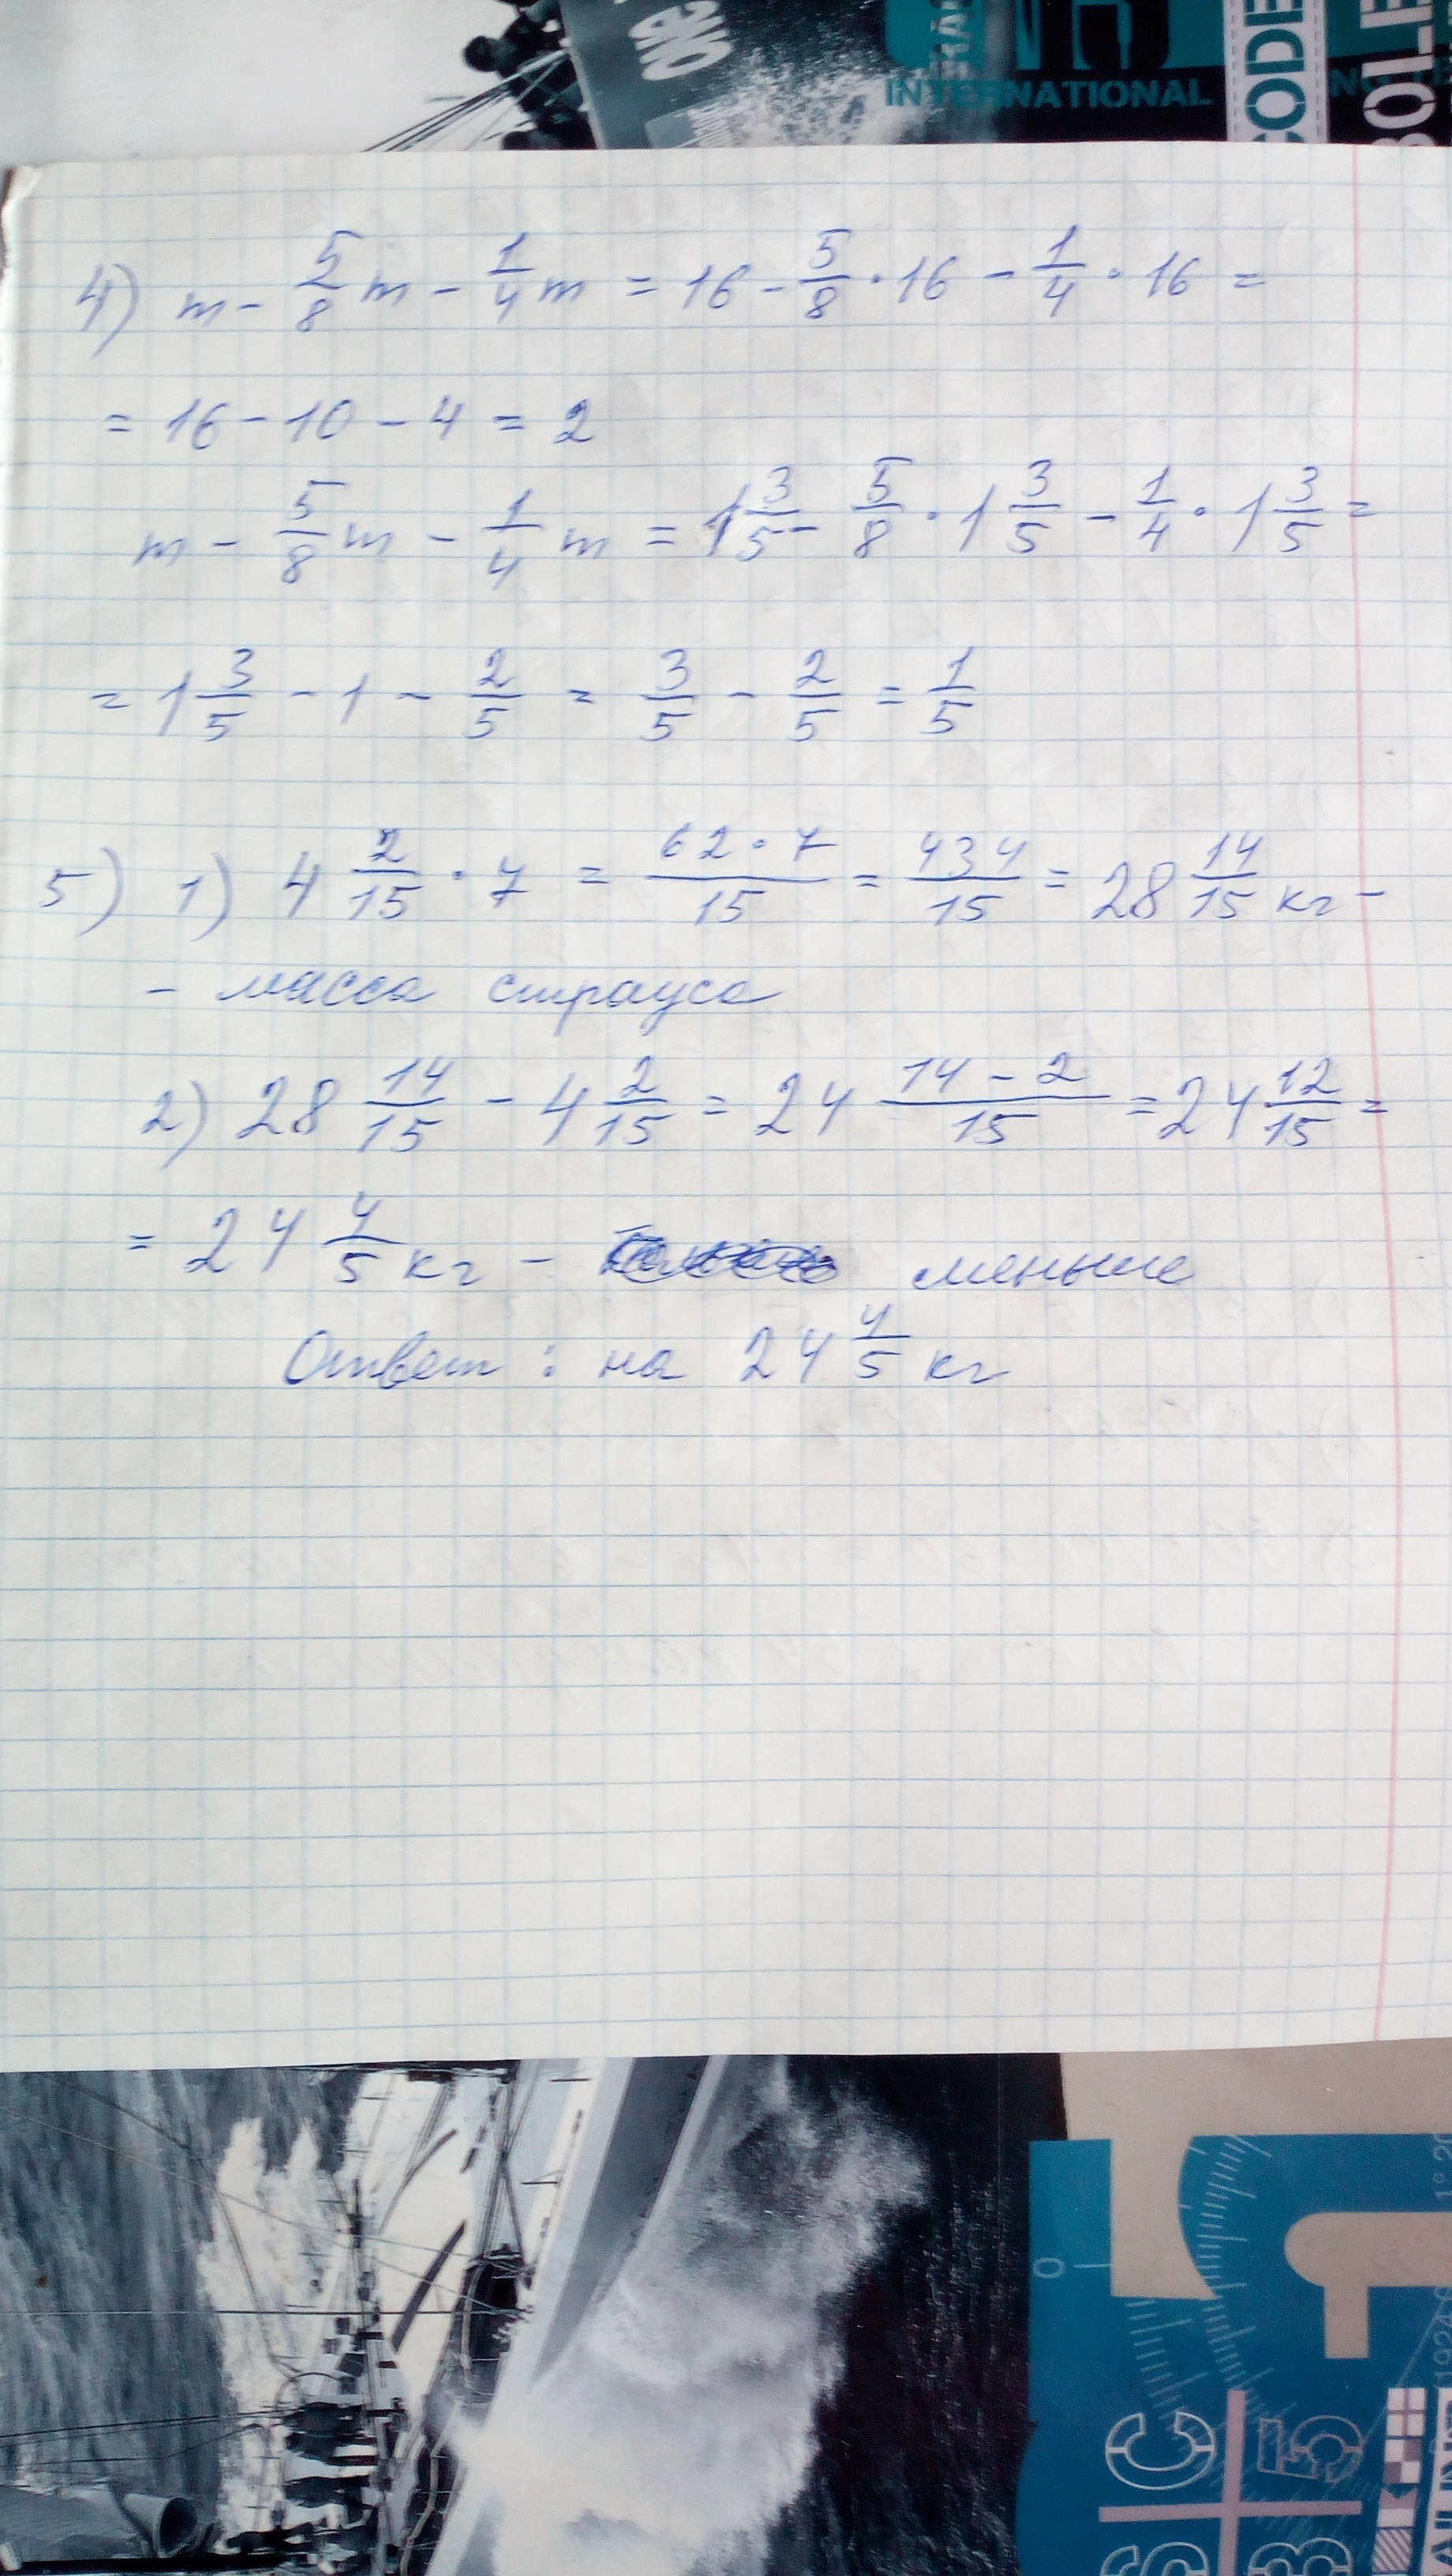 INTERNATIONAL
CODE
4) m - 5/8 m - 1/4 m = 16 - 5/8 · 16 - 1/4 · 16 =
= 16 - 10 - 4 = 2
m - 5/8 m - 1/4 m = 1 3/5 - 5/8 · 1 3/5 - 1/4 · 1 3/5 =
= 1 3/5 - 1 - 2/5 = 3/5 - 2/5 = 1/5
5) 1) 4 2/15 · 7 = 62·7/15 = 434/15 = 28 14/15 кг -
- масса страуса
2) 28 14/15 - 4 2/15 = 24 14-2/15 = 24 12/15 =
= 24 4/5 кг - меньше
Ответ : на 24 4/5 кг